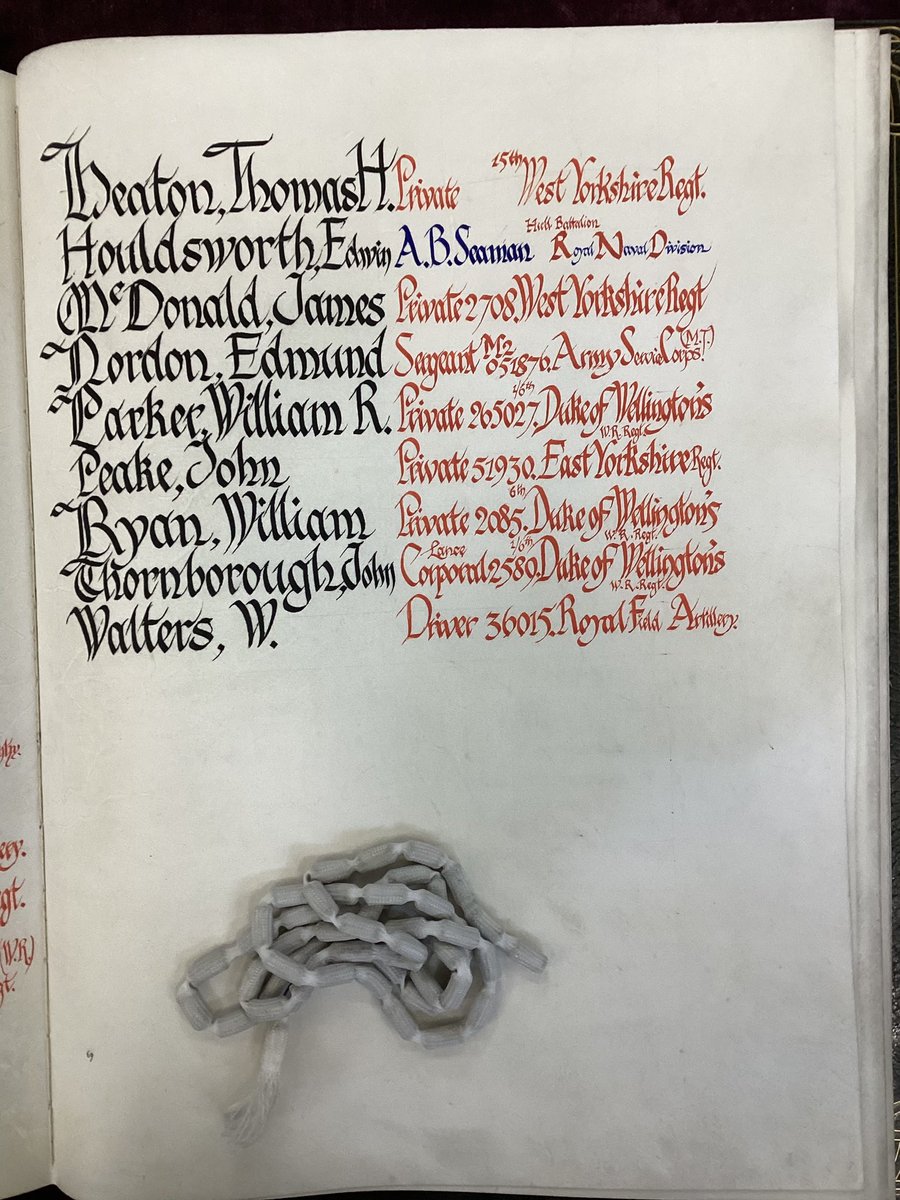 Heaton, Thomas H. Private 15th West Yorkshire Regt.
Houldsworth, Edwin A.B. Seaman Battalion Royal Naval Division
McDonald, James Private 2708. West Yorkshire Regt
Nordon, Edmund Sergeant M2 051876. Army Service Corps. (M.T.)
Parker, William R. Private 265027. 1/6th Duke of Wellington's W.R. Regt.
Peake, John Private 51930. East Yorkshire Regt.
Ryan, William Private 2085. 6th Duke of Wellington's W.R. Regt.
Thornborough, John Lance Corporal 2589. 1/6th Duke of Wellington's W.R. Regt.
Walters, W. Driver 36015. Royal Field Artillery.
(W.R.)